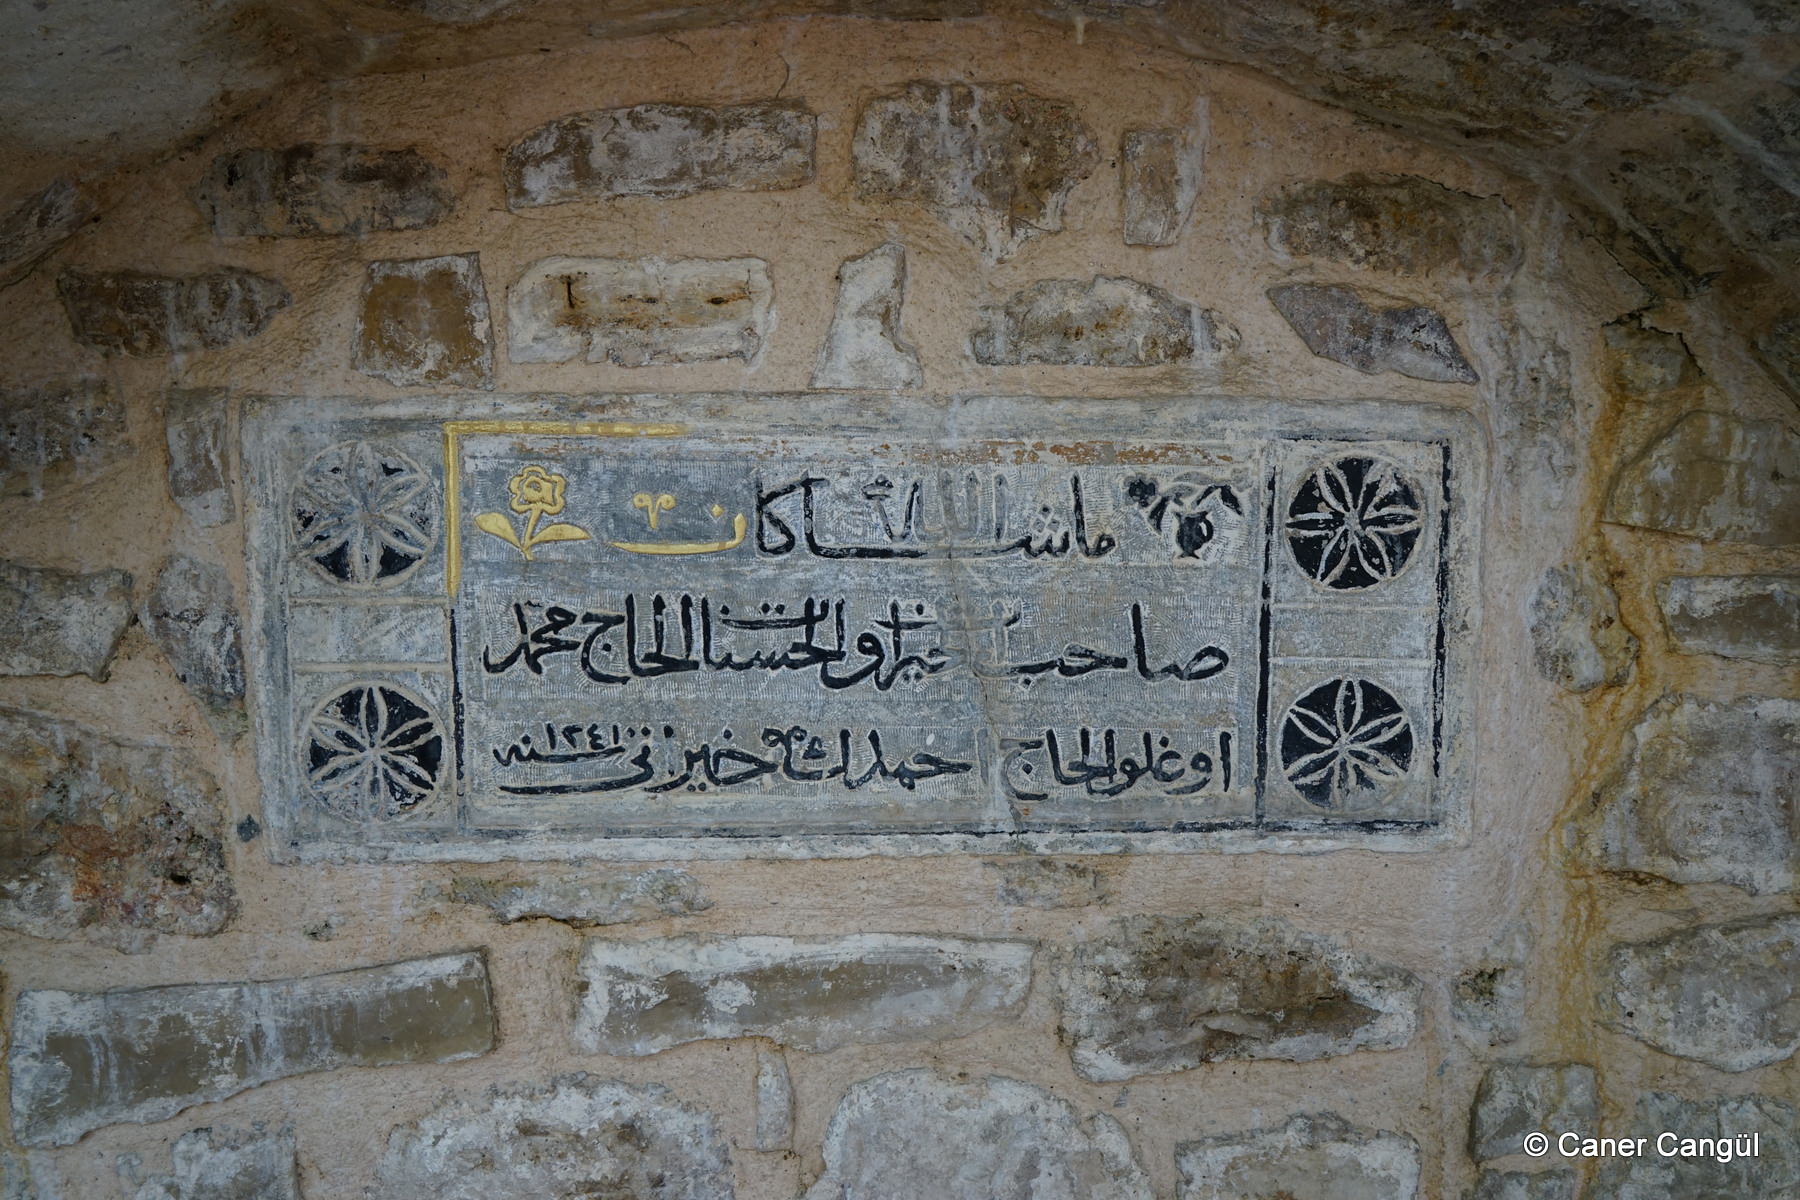 ما شاء الله كان
صاحب الخيرات والحسنات الحاج محمد
اوغلو الحاج احمد سنه ١٢٤١
© Caner Cangül